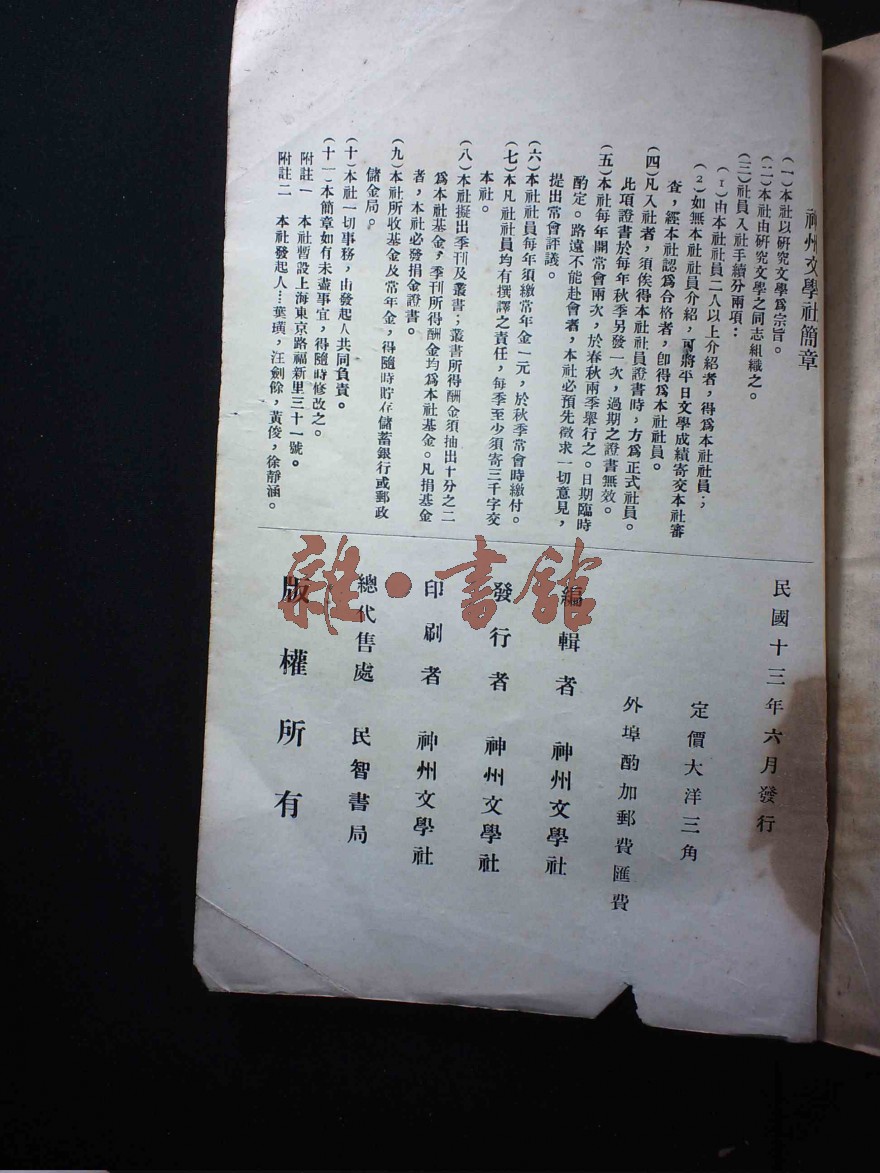 神州文學社簡章
(一)本社以研究文學爲宗旨。
(二)本社由研究文學之同志組織之。
(三)社員入社手續分兩項:
(1)由本社社員二人以上介紹者,得爲本社社員;
(2)如無本社社員介紹,可將平日文學成績寄交本社審
查,經本社認爲合格者,卽得爲本社社員。
(四)凡入社者,須俟得本社社員證書時,方爲正式社員。
此項證書於每年秋季另發一次,過期之證書無效。
(五)本社每年開常會兩次,於春秋兩季舉行之。日期臨時
酌定。路遠不能赴會者,本社必預先徵求一切意見,
提出常會評議。
(六)本社社員每年須繳常年金一元,於秋季常會時繳付。
(七)本凡社社員均有撰譯之責任,每季至少須寄三千字交
本社。
(八)本社擬出季刊及叢書;叢書所得酬金須抽出十分之二
爲本社基金,季刊所得酬金均爲本社基金。凡捐基金
者,本社必發捐金證書。
(九)本社所收基金及常年金,得隨時貯存儲蓄銀行或郵政
儲金局。
(十)本社一切事務,由發起人共同負責。
(十一)本簡章如有未盡事宜,得隨時修改之。
附註一 本社暫設上海東京路福新里三十一號。
附註二 本社發起人…葉璜,汪劍餘,黃俊,徐靜涵。
民國十三年六月發行
定價大洋三角
外埠酌加郵費匯費
編輯者 神州文學社
發行者 神州文學社
印刷者 神州文學社
總代售處 民智書局
版權所有
雜·書館